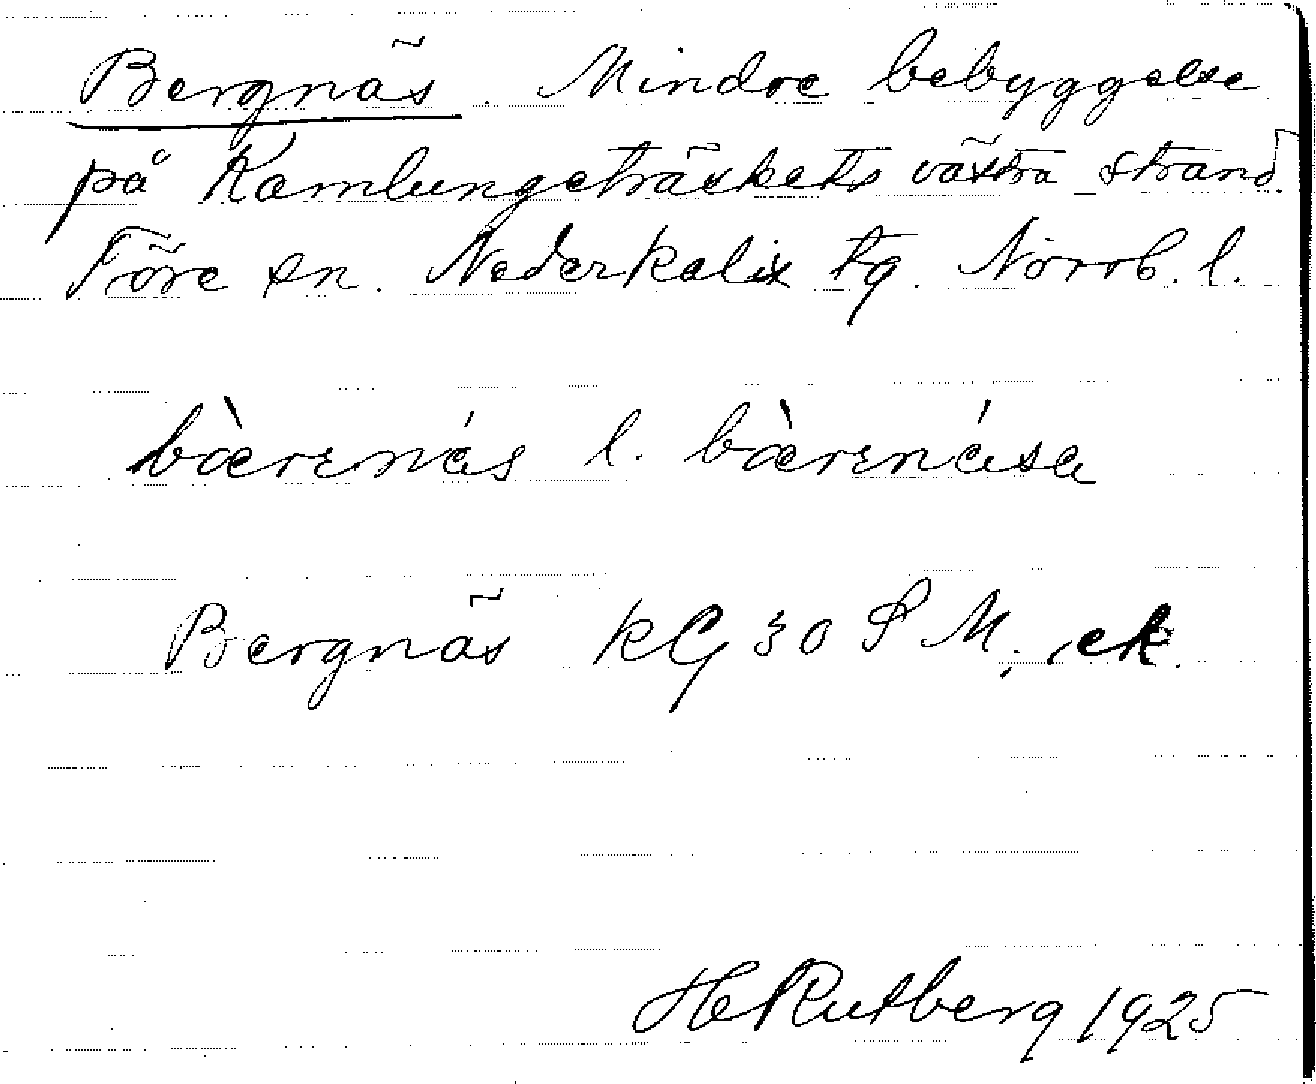 Bergnäs. Mindre bebyggelse
på Kamlungeträskets västra strand.
Töre sn. Nederkalix tg. Norrb. l.
bæ̀renás l. bæ̀renása
Bergnäs KG 30 S M, ek.
H Rutberg 1925